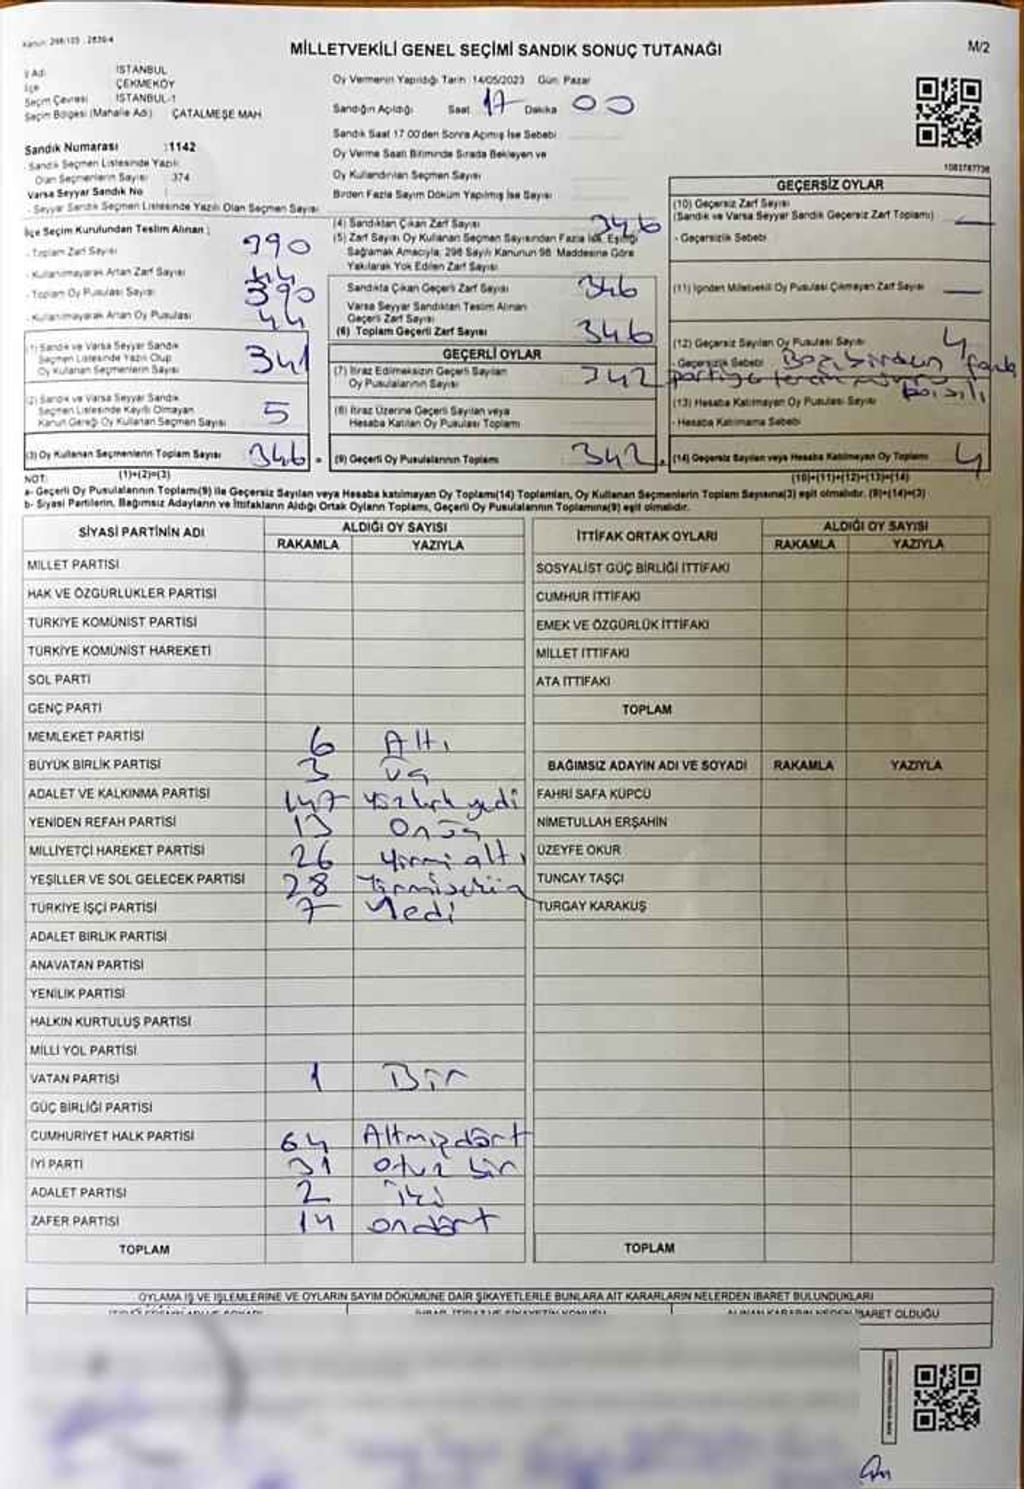 Kanun: 298/105 , 2839/4
MİLLETVEKİLİ GENEL SEÇİMİ SANDIK SONUÇ TUTANAĞI
M/2
İl Adı İSTANBUL
İlçe ÇEKMEKÖY
Seçim Çevresi İSTANBUL-1
Seçim Bölgesi (Mahalle Adı) ÇATALMEŞE MAH
Oy Vermenin Yapıldığı Tarih 14/05/2023 Gün: Pazar
Sandığın Açıldığı Saat 17 Dakika 00
Sandık Saat 17.00'den Sonra Açılmış İse Sebebi
Oy Verme Saati Bitiminde Sırada Bekleyen ve
Oy Kullandırılan Seçmen Sayısı
Birden Fazla Sayım Döküm Yapılmış İse Sayısı
Sandık Numarası :1142
- Sandık Seçmen Listesinde Yazılı
Olan Seçmenlerin Sayısı 374
Varsa Seyyar Sandık No :
- Seyyar Sandık Seçmen Listesinde Yazılı Olan Seçmen Sayısı
İlçe Seçim Kurulundan Teslim Alınan ;
- Toplam Zarf Sayısı 390
- Kullanılmayarak Artan Zarf Sayısı 44
- Toplam Oy Pusulası Sayısı 390
- Kullanılmayarak Artan Oy Pusulası 44
(1) Sandık ve Varsa Seyyar Sandık
Seçmen Listesinde Yazılı Olup
Oy Kullanan Seçmenlerin Sayısı 341
(2) Sandık ve Varsa Seyyar Sandık
Seçmen Listesinde Kayıtlı Olmayan
Kanun Gereği Oy Kullanan Seçmen Sayısı 5
(3) Oy Kullanan Seçmenlerin Toplam Sayısı 346
(1)+(2)=(3)
(4) Sandıktan Çıkan Zarf Sayısı 346
(5) Zarf Sayısı Oy Kullanan Seçmen Sayısından Fazla İse, Eşitliği
Sağlamak Amacıyla, 298 Sayılı Kanunun 98. Maddesine Göre
Yakılarak Yok Edilen Zarf Sayısı
Sandıkta Çıkan Geçerli Zarf Sayısı 346
Varsa Seyyar Sandıktan Teslim Alınan
Geçerli Zarf Sayısı
(6) Toplam Geçerli Zarf Sayısı 346
GEÇERLİ OYLAR
(7) İtiraz Edilmeksizin Geçerli Sayılan
Oy Pusulalarının Sayısı 342
(8) İtiraz Üzerine Geçerli Sayılan veya
Hesaba Katılan Oy Pusulası Toplamı
(9) Geçerli Oy Pusulalarının Toplamı 342
1083787738
GEÇERSİZ OYLAR
(10) Geçersiz Zarf Sayısı
(Sandık ve Varsa Seyyar Sandık Geçersiz Zarf Toplamı) —
- Geçersizlik Sebebi
(11) İçinden Milletvekili Oy Pusulası Çıkmayan Zarf Sayısı —
(12) Geçersiz Sayılan Oy Pusulası Sayısı 4
- Geçersizlik Sebebi
(13) Hesaba Katılmayan Oy Pusulası Sayısı
- Hesaba Katılmama Sebebi
(14) Geçersiz Sayılan veya Hesaba Katılmayan Oy Toplamı 4
(10)+(11)+(12)+(13)=(14)
NOT:
a- Geçerli Oy Pusulalarının Toplamı(9) ile Geçersiz Sayılan veya Hesaba katılmayan Oy Toplamı(14) Toplamları, Oy Kullanan Seçmenlerin Toplam Sayısına(3) eşit olmalıdır. (9)+(14)=(3)
b- Siyasi Partilerin, Bağımsız Adayların ve İttifakların Aldığı Ortak Oyların Toplamı, Geçerli Oy Pusulalarının Toplamına(9) eşit olmalıdır.
SİYASİ PARTİNİN ADI ALDIĞI OY SAYISI
RAKAMLA YAZIYLA
MİLLET PARTİSİ
HAK VE ÖZGÜRLÜKLER PARTİSİ
TÜRKİYE KOMÜNİST PARTİSİ
TÜRKİYE KOMÜNİST HAREKETİ
SOL PARTİ
GENÇ PARTİ
MEMLEKET PARTİSİ 6 Altı
BÜYÜK BİRLİK PARTİSİ 3 Üç
ADALET VE KALKINMA PARTİSİ 147 yüzkırk yedi
YENİDEN REFAH PARTİSİ 13 Onüç
MİLLİYETÇİ HAREKET PARTİSİ 26 Yirmi altı
YEŞİLLER VE SOL GELECEK PARTİSİ 28 Yirmisekiz
TÜRKİYE İŞÇİ PARTİSİ 7 Yedi
ADALET BİRLİK PARTİSİ
ANAVATAN PARTİSİ
YENİLİK PARTİSİ
HALKIN KURTULUŞ PARTİSİ
MİLLİ YOL PARTİSİ
VATAN PARTİSİ 1 Bir
GÜÇ BİRLİĞİ PARTİSİ
CUMHURİYET HALK PARTİSİ 64 Altmışdört
İYİ PARTİ 31 Otuz bir
ADALET PARTİSİ 2 İki
ZAFER PARTİSİ 14 ondört
TOPLAM
İTTİFAK ORTAK OYLARI ALDIĞI OY SAYISI
RAKAMLA YAZIYLA
SOSYALİST GÜÇ BİRLİĞİ İTTİFAKI
CUMHUR İTTİFAKI
EMEK VE ÖZGÜRLÜK İTTİFAKI
MİLLET İTTİFAKI
ATA İTTİFAKI
TOPLAM
BAĞIMSIZ ADAYIN ADI VE SOYADI RAKAMLA YAZIYLA
FAHRİ SAFA KÜPCÜ
NİMETULLAH ERŞAHİN
ÜZEYFE OKUR
TUNCAY TAŞÇI
TURGAY KARAKUŞ
TOPLAM
OYLAMA İŞ VE İŞLEMLERİNE VE OYLARIN SAYIM DÖKÜMÜNE DAİR ŞİKAYETLERLE BUNLARA AİT KARARLARIN NELERDEN İBARET BULUNDUKLARI